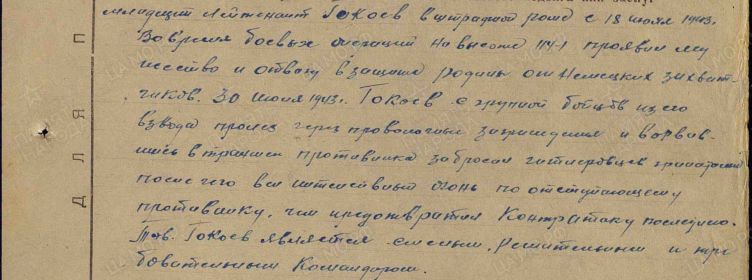 младший лейтенант Гокоев в штрафной роте с 18 июля 1943г.
Во время боевых операций на высоте 114-1 проявил му
жество и отвагу в защите родины от немецких захват-
чиков. 30 июля 1943г. Гокоев с группой бойцов из его
взвода пролез через проволочные заграждения и ворвав-
шись в траншеи противника забросал гитлеровцев гранатами
после чего вел интенсивный огонь по отступающему
противнику, чем предотвратил контратаку последнего.
Тов. Гокоев является смелым, решительным и тре
бовательным командиром.
П
Я
Л
Д